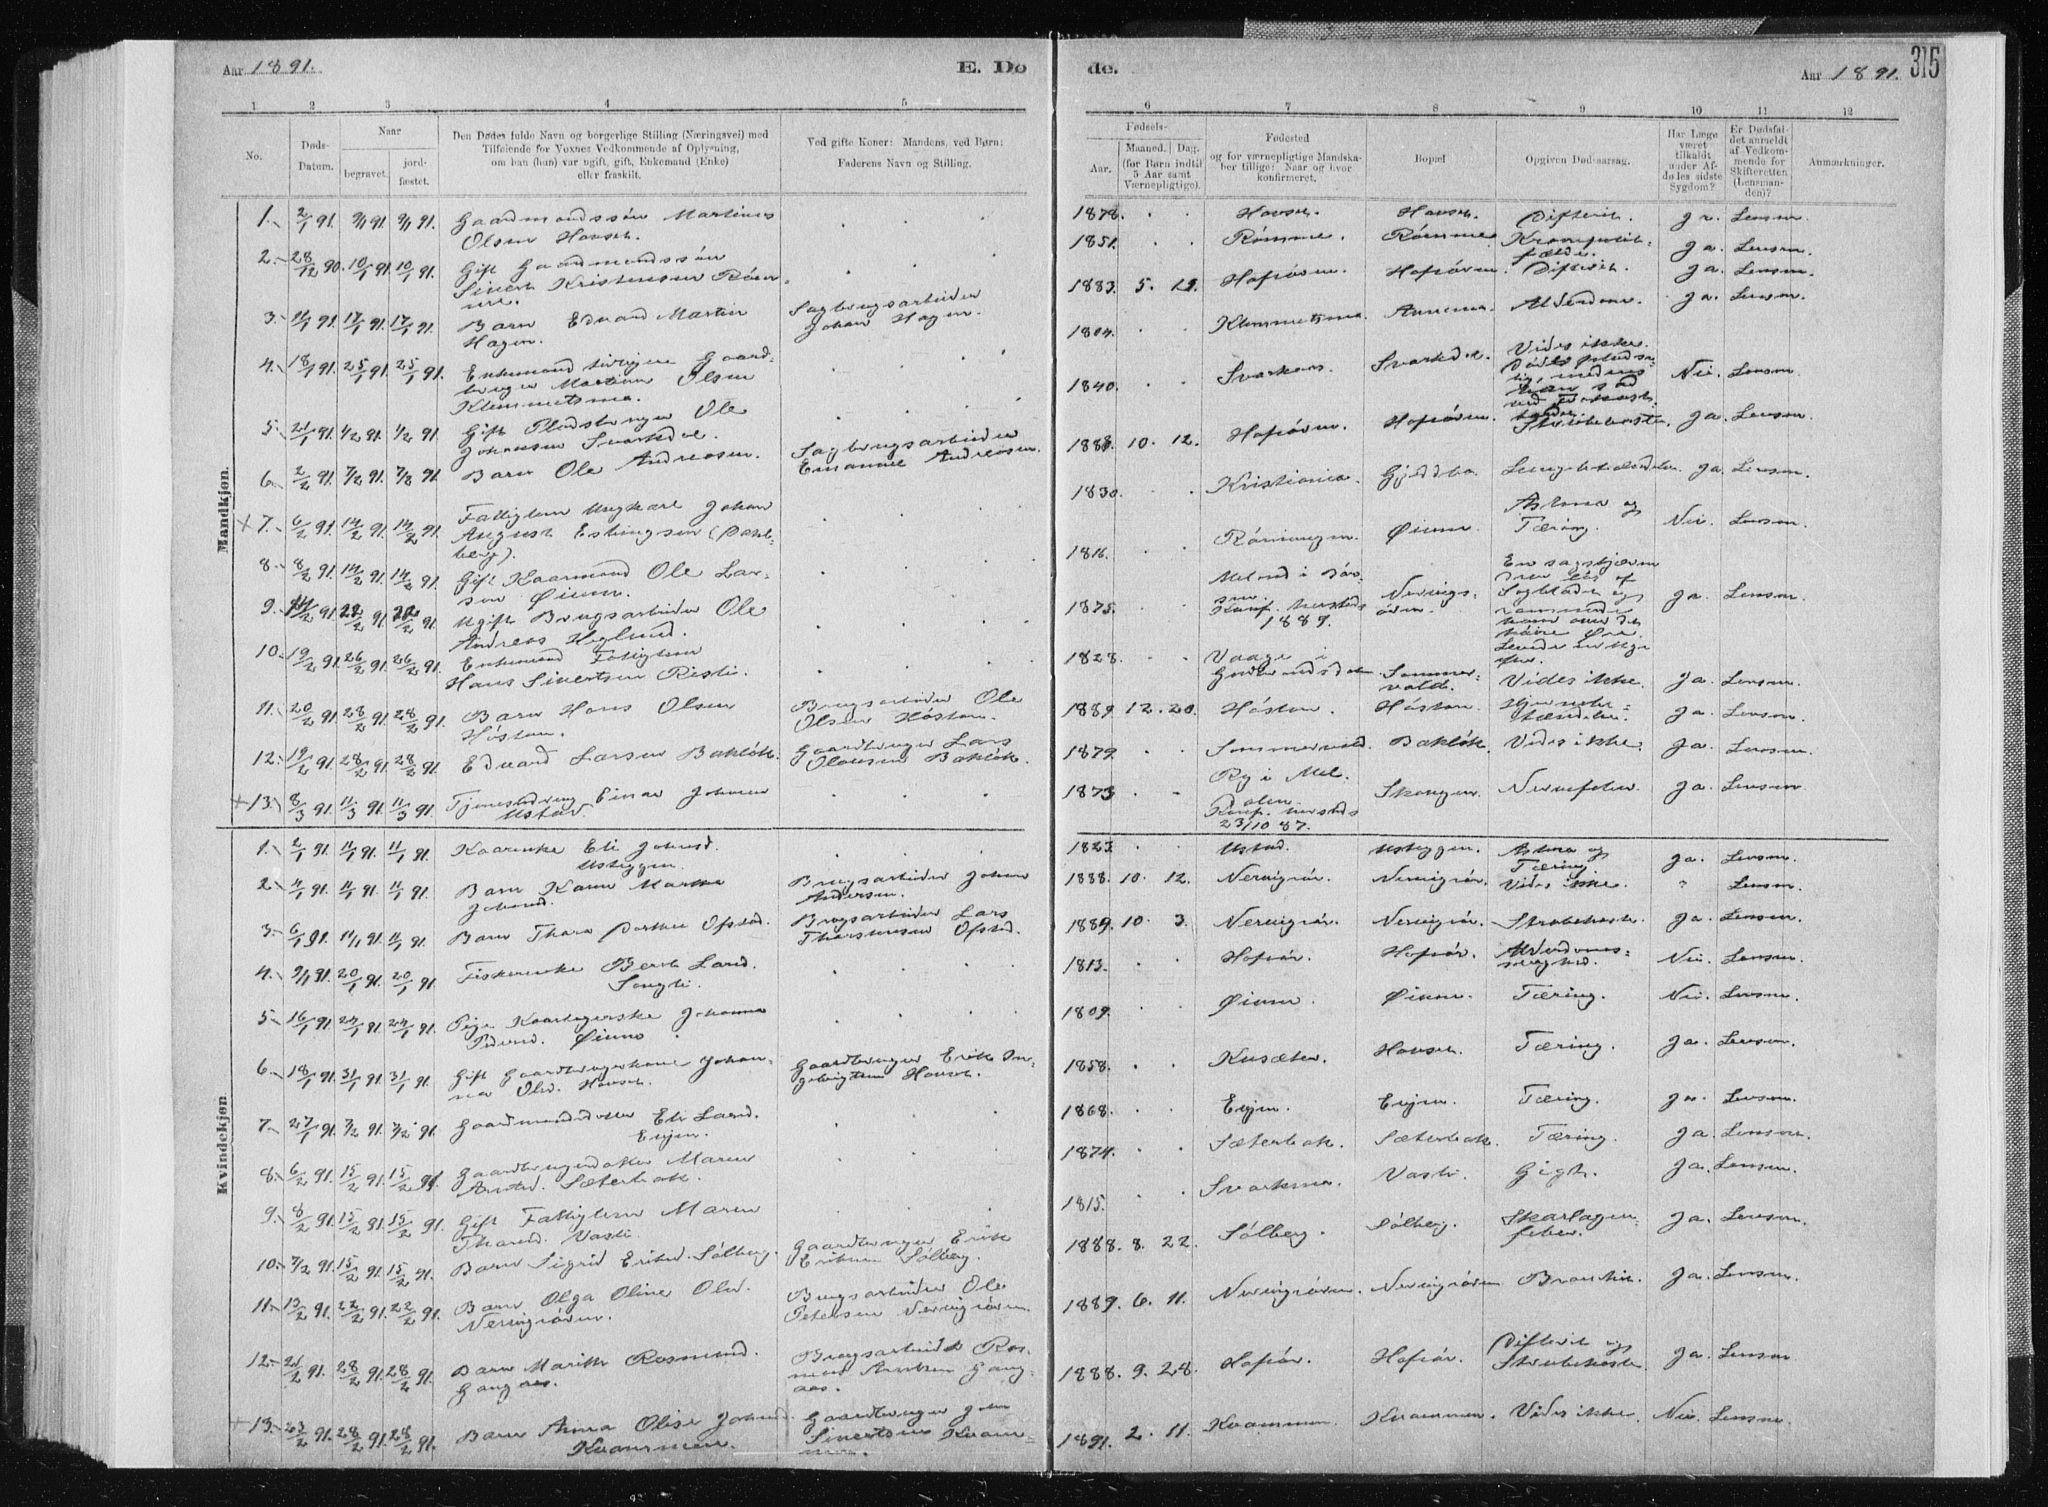 Aar 1891.
E. Dø
de.
Aar 1891.
315
1 2 3 4 5
6 7 8 9 10 11 12
No.
Døds-
Datum.
Naar
begravet.
jord-
fæstet.
Den Dødes fulde Navn og borgerlige Stilling (Næringsvei) med
Tilføiende for Voxnes Vedkommende af Oplysning,
om han (hun) var ugift, gift, Enkemand (Enke)
eller fraskilt.
Ved gifte Koner: Mandens, ved Børn:
Faderens Navn og Stilling.
Fødsels-
Aar.
Maaned. Dag.
(for Børn indtil
5 Aar samt
Værnepligtige).
Fødested
og for værnepligtige Mandska-
ber tillige: Naar og hvor
konfirmeret.
Bopæl
Opgiven Dødsaarsag.
Har Læge
været
tilkaldt
under Af-
dødes sidste
Sygdom?
Er Dødsfal-
det anmeldt
af Vedkom-
mende for
Skifteretten
(Lensman-
den)?
Anmærkninger.
Mandkjøn.
1. 2/1 91. 9/1 91 9/1 91. Gaardmandssøn Martinus
Olsen Hovset.
1878. Hovset. Hovset. Difterit. Ja. Lensm.
2. 28/12 90. 10/1 91. 10/1 91. Gift Gaardmandssøn
Sivert Kristensen Röm-
me.
1851. Römme. Römme. Ja. Lensm.
3. 11/1 91. 17/1 91. 17/1 91. Barn Edvard Martin
Hagen.
Sagbrugsarbeider
Johan Hagen.
1883. 5. 19. Hofsörn. Hofsörn. Difterit. Ja. Lensm.
4. 18/1 91. 25/1 91. 25/1 91. Enkemand Gaard-
bruger Olsen
Klemmetsmo.
1804. Klemmetsmo. Alderdom. Ja. Lensm.
5. 21/1 91. 1/2 91. 1/2 91. Gift Pladsbruger Ole
Johansen Svorkdal.
1840. Svorkdal. Vides ikke.
Nei. Lensm.
6. 2/2 91. 7/2 91. 7/2 91. Barn Ole Andreasen.
Sagbrugsarbeider
Emanuel Andreasen.
10. 12. Hofsörn. Hofsörn. Strubehoste. Ja. Lensm.
+7. 6/2 91. 14/2 91. 14/2 91. Fattiglem Ungkarl Johan
August
1830. Kristiania. Ja. Lensm.
8. 8/2 91. 14/2 91. 14/2 91. Gift Kaarmand Ole Lar-
sen Øiumn.
1816. Øiumn. Astma og
Tæring. Nei. Lensm.
9. 14/2 91. 22/2 91. 22/2 91. Ugift Brugsarbeider Ole
Andreas Heglund.
1875. Konf.
1889.
Ja. Lensm.
10. 19/2 91. 26/2 91. 26/2 91. Enkemand Fattiglem
Hans Sivertsen Risti.
1828. Vaage i
Gudbrandsdalen Sommer-
vold. Vides ikke. Ja. Lensm.
11. 20/2 91. 28/2 91. 28/2 91. Barn Hans Olsen
Höston.
Brugsarbeider Ole
Olsen Höston.
1889. 12. 20. Höston. Höston. Ja. Lensm.
12. 19/2 91. 28/2 91. 28/2 91. Edvard Larsen Baklök.
Gaardbruger Lars
Olausen Baklök.
1879. Sommervold. Baklök. Vides ikke. Ja. Lensm.
+13. 8/3 91. 11/3 91. 11/3 91. Tjenestdreng Einar Johnsen
Ustad.
1873. Ry i Mel-
dalen.
Konf.
23/10 87. Skaugen. Nervefeber. Ja. Lensm.
Kvindekjøn.
1. 2/1 91. 11/1 91. 11/1 91. Kaarenke Eli Johnsd.
Ustyggen.
1823. Ustad. Ustyggen. Astma og
Tæring. Ja. Lensm.
2. 4/1 91. 11/1 91. 11/1 91. Barn Karen Marthe
Johansd.
Brugsarbeider Johan
Andersen.
1888. 10. 12. Nervigsör. Nervigsör. Vides ikke. " Lensm.
3. 6/1 91. 11/1 91. 11/1 91. Barn Thora Dorthea Ofstad.
Brugsarbeider Lars
Thorstensen Ofstad.
1889. 10. 3. Nervigsör. Nervigsör. Strubehoste. Ja. Lensm.
4. 9/1 91. 20/1 91. 20/1 91. Fiskerenke Berit Larsd.
Songli.
1813. Hofsör. Hofsör. Alderdoms-
svaghed. Nei. Lensm.
5. 16/1 91. 24/1 91. 24/1 91. Pige Kaartagerske Johanna
Pedersd. Øiumn.
1809. Øiumn. Øiumn. Tæring. Nei. Lensm.
6. 18/1 91. 31/1 91. 31/1 91. Gift Gaardbrugerkone Johan-
na Olsd. Hovset.
Gaardbruger Erik In-
gebrigtsen Hovset.
1858. Kusæter. Hovset. Tæring. Ja. Lensm.
7. 27/1 91. 7/2 91. 7/2 91. Gaardmandsdatter Eli Larsd.
Evjen.
1868. Evjen. Evjen. Tæring. Ja. Lensm.
8. 6/2 91. 15/2 91. 15/2 91. Gaardbrugerdatter Maren
Arntsd. Sæterbak.
1874. Sæterbak. Sæterbak. Tæring. Ja. Lensm.
9. 8/2 91. 15/2 91. 15/2 91. Gift Fattiglem Maren
Thoresd. Vasli.
1815. Svorkmo. Vasli. Gigt. Ja. Lensm.
10. 7/2 91. 15/2 91. 15/2 91. Barn Sigrid Eriksd. Sölberg.
Gaardbruger Erik
Eriksen Sölberg.
1888. 8. 22. Sölberg. Sölberg. Skarlagen-
feber. Ja. Lensm.
11. 13/2 91. 22/2 91. 22/2 91. Barn Olga Oline Olsd.
Nervigsörn.
Brugsarbeider Ole
Petersen Nervigsörn.
1889. 6. 11. Nervigsörn. Nervigsörn Bronkit. Ja. Lensm.
12. 21/2 91. 28/2 91. 28/2 91. Barn Marith Rasmusd.
Gangaas.
Brugsarbeider Ras-
mus Arntsen Gang-
aas.
1888. 9. 28. Hofsör. Hofsör. Difterit og
Strubehoste. Ja. Lensm.
+13. 23/2 91. 28/2 91. 28/2 91. Barn Anna Olise Johnsd.
Kvammen.
Gaardbruger John
Sivertsen Kvam-
men.
1891. 2. 11. Kvammen. Kvammen. Vides ikke. Nei. Lensm.